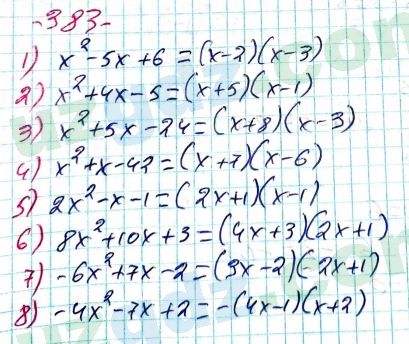 -383-
1) x² - 5x + 6 = (x-2)(x-3)
2) x² + 4x - 5 = (x+5)(x-1)
3) x² + 5x - 24 = (x+8)(x-3)
4) x² + x - 42 = (x+7)(x-6)
5) 2x² - x - 1 = (2x+1)(x-1)
6) 8x² + 10x + 3 = (4x+3)(2x+1)
7) -6x² + 7x - 2 = (3x-2)(-2x+1)
8) -4x² - 7x + 2 = -(4x-1)(x+2)